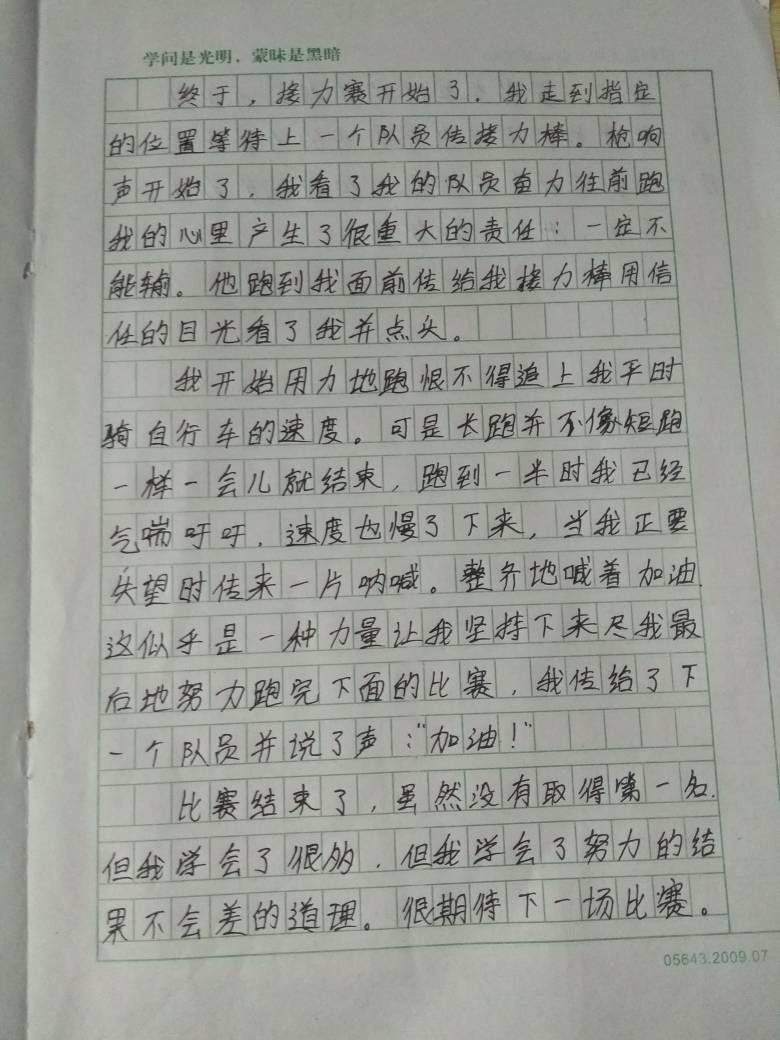 学问是光明，蒙昧是黑暗
终于，接力赛开始了．我走到指定
的位置等待上一个队员传接力棒。枪响
声开始了，我看了我的队员奋力往前跑
我的心里产生了很重大的责任：一定不
能输。他跑到我面前传给我接力棒用信
任的目光看了我并点头。
我开始用力地跑恨不得追上我平时
骑自行车的速度。可是长跑并不像短跑
一样一会儿就结束，跑到一半时我已经
气喘吁吁，速度也慢了下来，当我正要
失望时传来一片呐喊。整齐地喊着加油．
这似乎是一种力量让我坚持下来尽我最
后地努力跑完下面的比赛，我传给了下
一个队员并说了声："加油！"
比赛结束了，虽然没有取得第一名．
但我学会了很多，但我学会了努力的结
果不会差的道理。很期待下一场比赛。
05643.2009.07